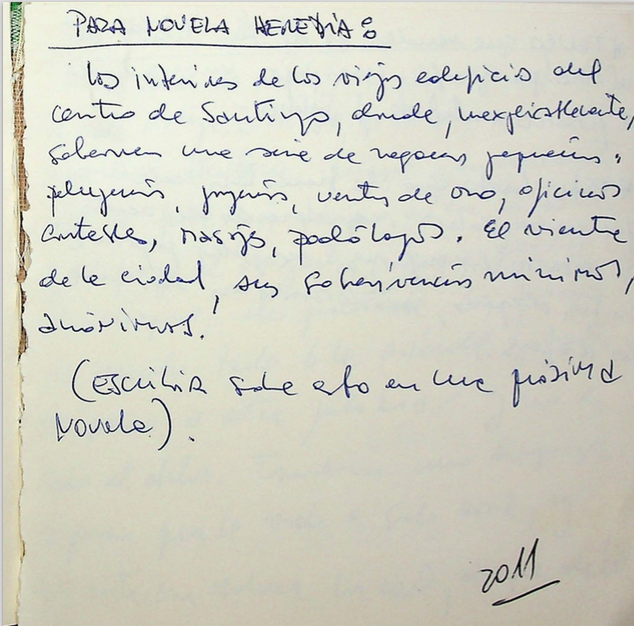 PARA NOVELA HEREDIA:
Los interiores de los viejos edificios del
centro de Santiago, donde, inexplicablemente,
sobreviven una serie de negocios pequeños:
peluquerías, joyerías, ventas de oro, oficinas
contables, masajes, podólogos. El vientre
de la ciudad, sus sobrevivencias mínimas,
anónimas.
(ESCRIBIR sobre esto en una próxima
Novela).
2011